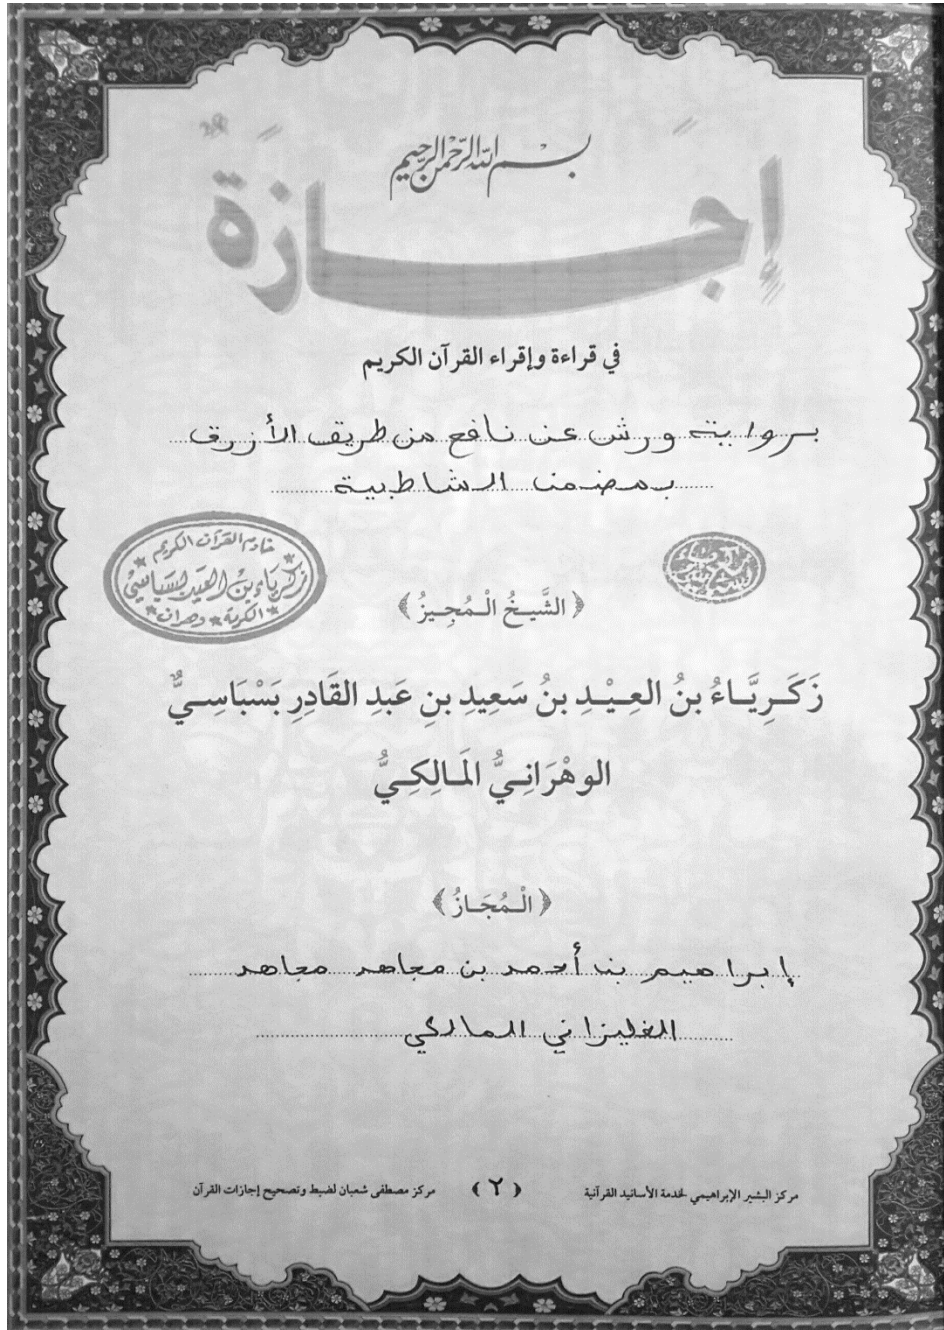 بسم الله الرحمن الرحيم
إِجَازَةٌ
في قراءة وإقراء القرآن الكريم
برواية ورش عن نافع من طريق الأزرق
بمضمن الشاطبية
خادم القرآن الكريم
زكرياء بن العيد بسباسي
الكرمة وهران
﴿الشَّيْخُ الْمُجِيزُ﴾
زَكَرِيَّاءُ بنُ العِيْدِ بنُ سَعِيدِ بنِ عَبدِ القَادِرِ بَسْبَاسِيٌّ
الوهْرَانِيُّ المَالِكِيُّ
﴿الْمُجَازُ﴾
إبراهيم بن أحمد بن مجاهد مجاهد
الغليزاني المالكي
مركز البشير الإبراهيمي لخدمة الأسانيد القرآنية
﴿٢﴾
مركز مصطفى شعبان لضبط وتصحيح إجازات القرآن